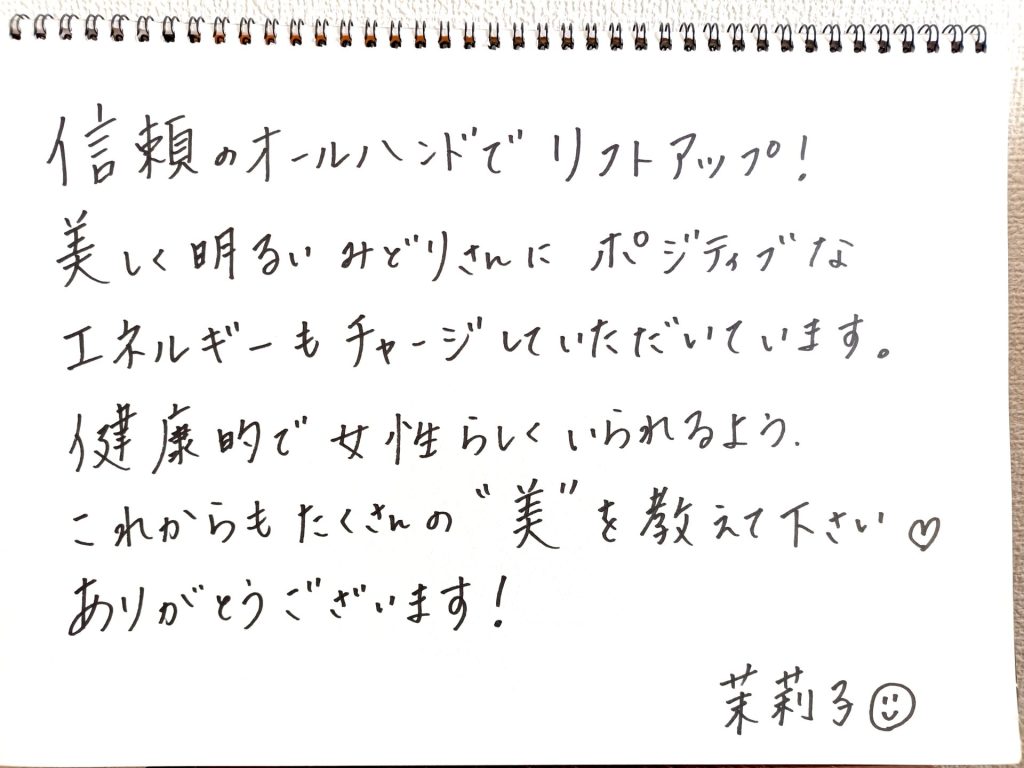 信頼のオールハンドでリフトアップ！
美しく明るいみどりさんに ポジティブな
エネルギーもチャージしていただいています。
健康的で女性らしくいられるよう、
これからもたくさんの“美”を教えて下さい♡
ありがとうございます！
茉莉子☺